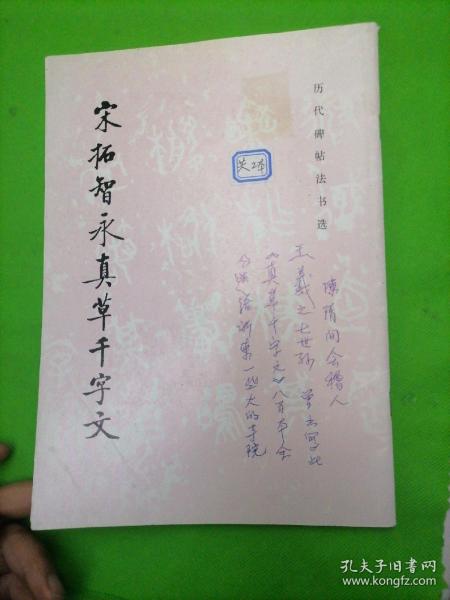 历代碑帖法书选
宋拓智永真草千字文
共2本
陈隋间会稽人
王羲之七世孙 曾书写此
《真草千字文》八百本余
分送给浙东一些大的寺院
孔夫子旧书网
www.kongfz.com